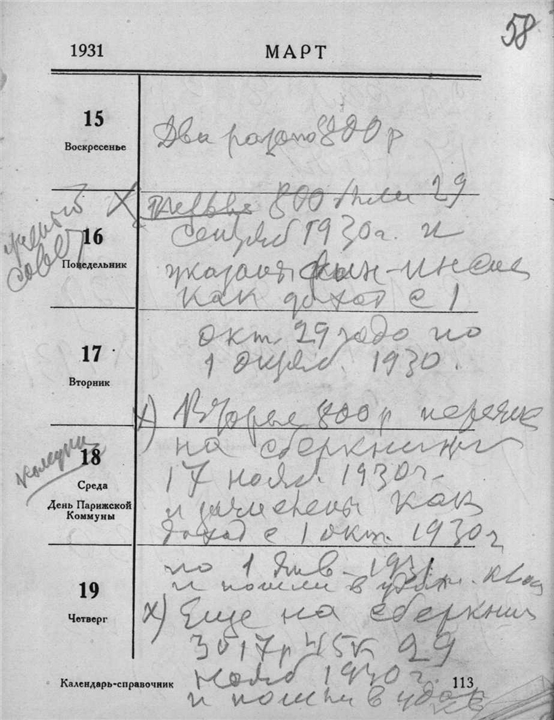 58
1931 МАРТ
15
Воскресенье
Два раза по 800 р
X первые 800 были 29
ученый
совет
16
Понедельник
сентяб 1930 г. и
указаны фин-инспе
как доход с 1
17
Вторник
окт. 29 года по
1 октяб. 1930.
X) Вторые 800 р
на сберкнижку
18
Среда
День Парижской
Коммуны
17 нояб. 1930 г.
и зачислены как
доход с 1 окт. 1930 г
по 1 янв - 1931
и пошли в
19
Четверг
X) Еще на сберкниж
3017 р 45 к 29
нояб 1930 г.
и пошли в
Календарь-справочник 113